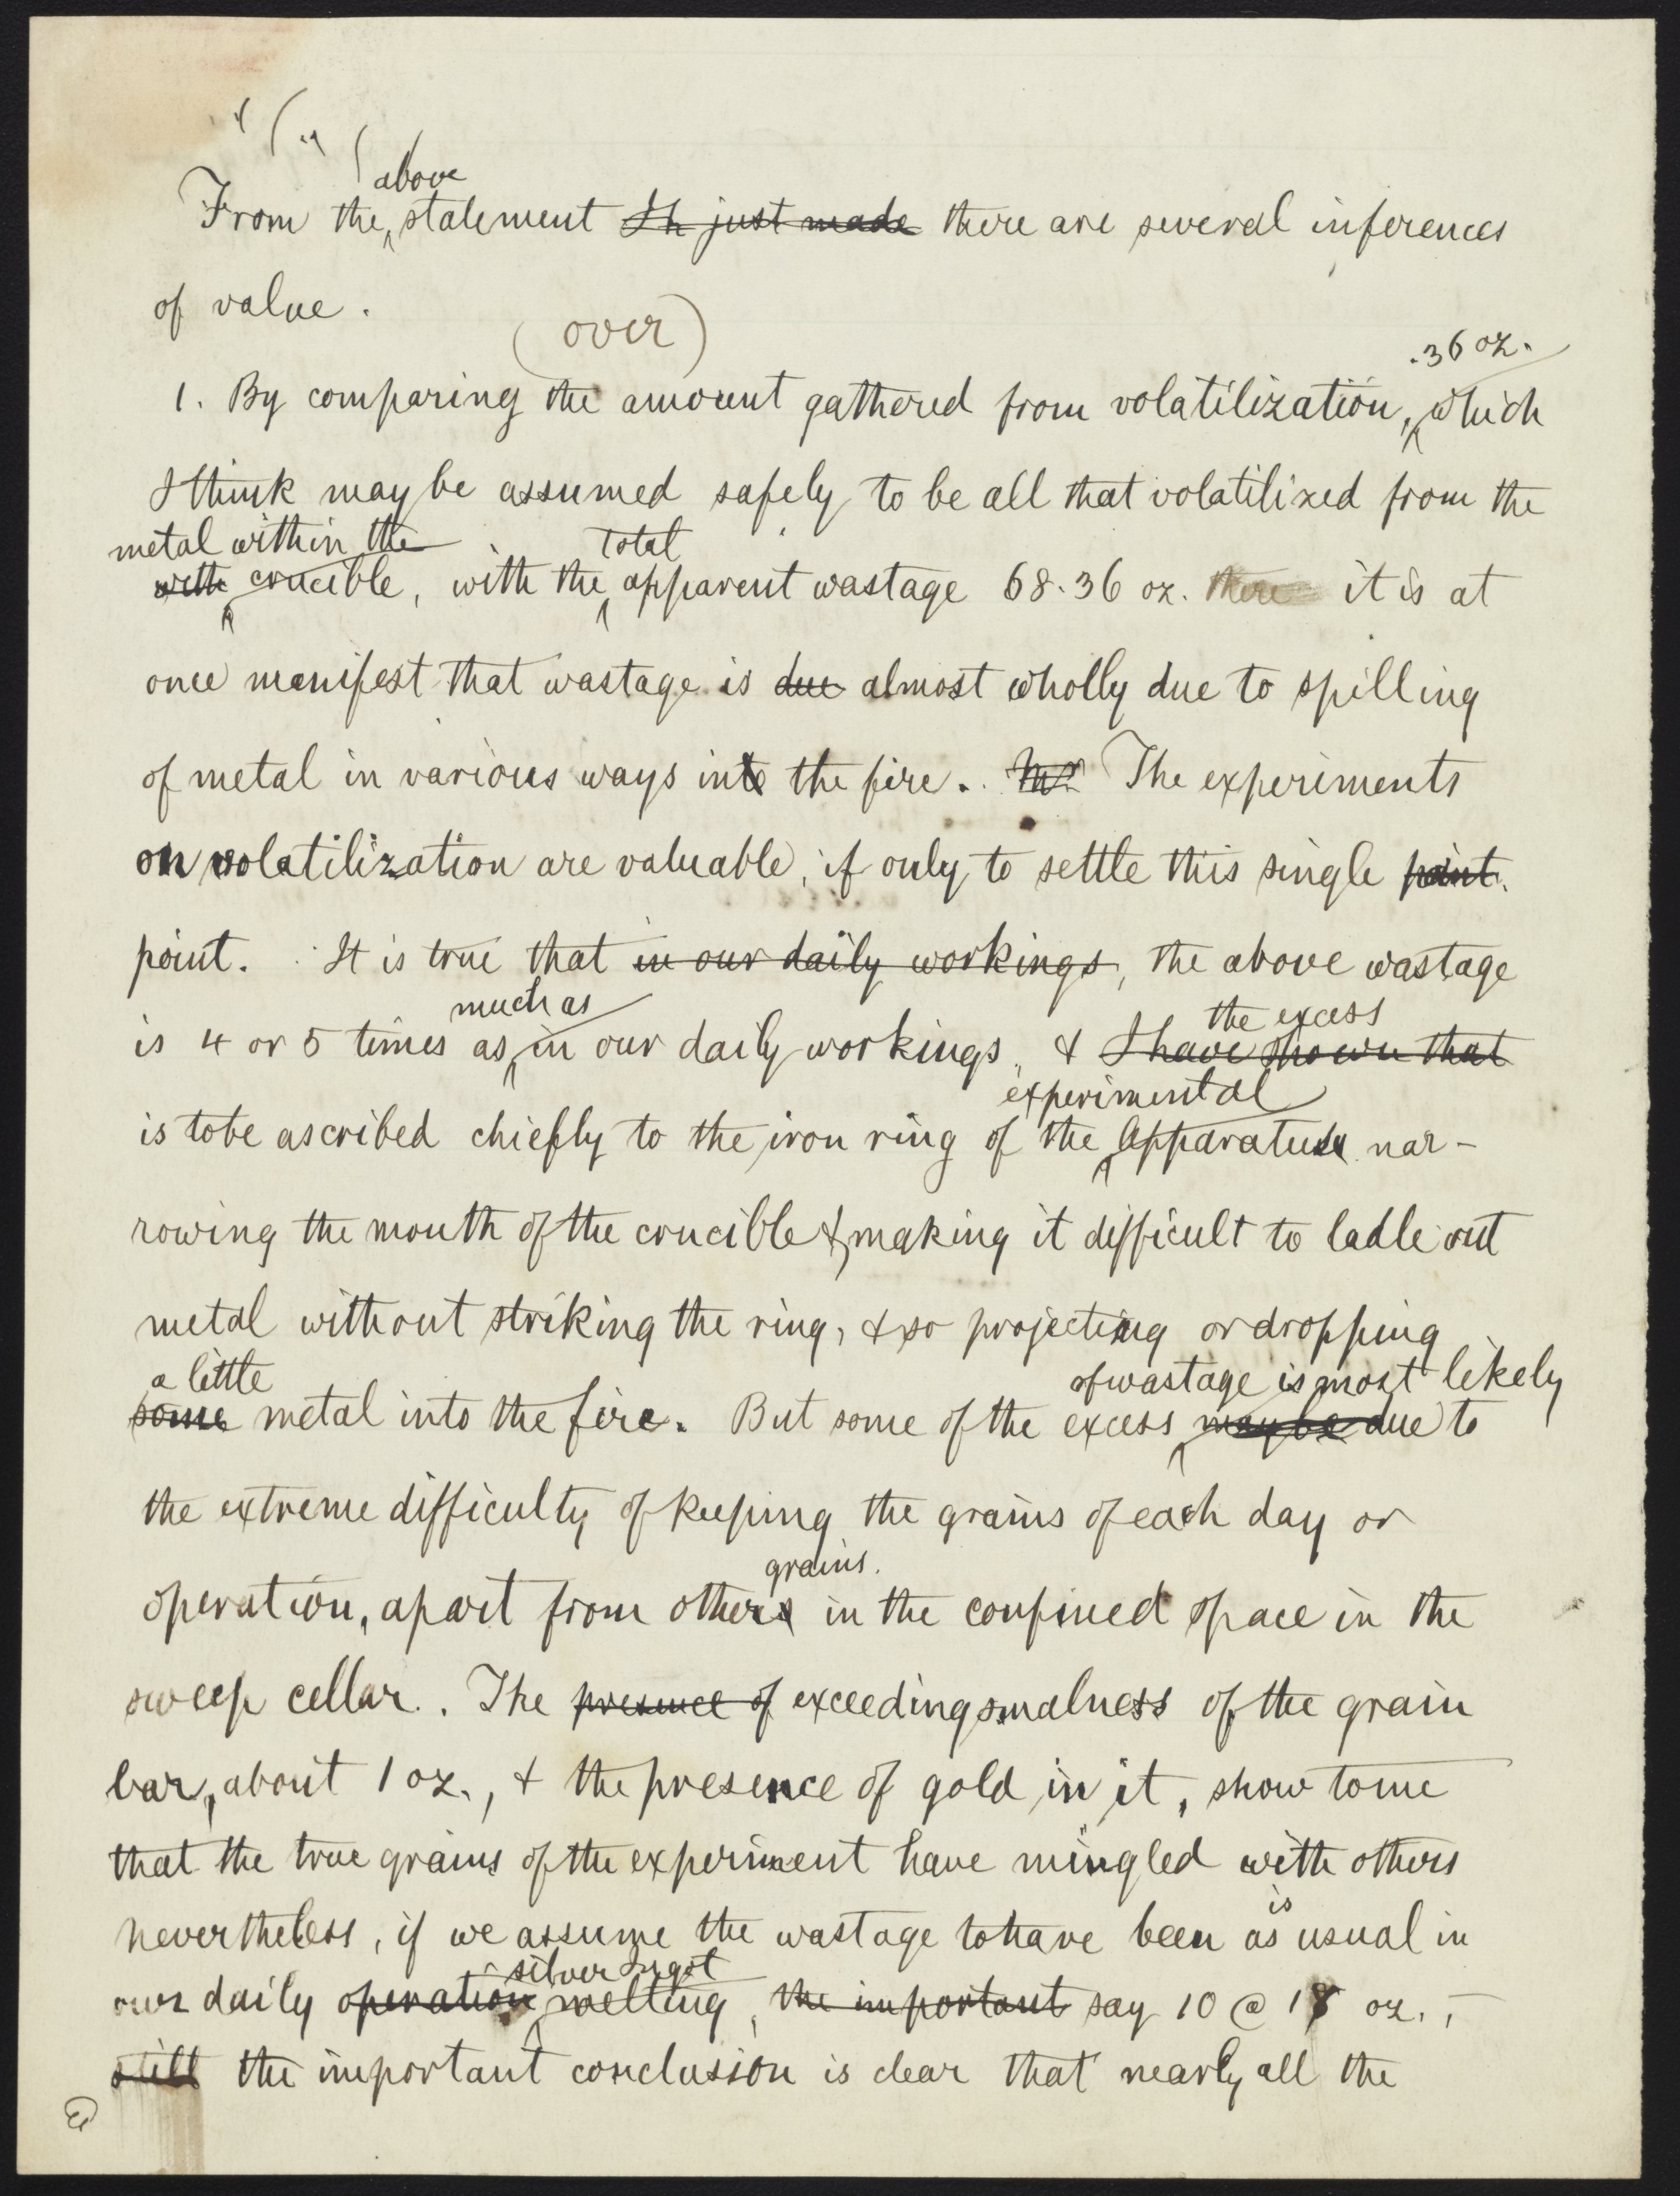 above
From the statement Th just made there are several inferences
of value.
(over)
.36 oz.
1. By comparing the amount gathered from volatilization, which
I think may be assumed safely to be all that volatilized from the
metal within the total
with crucible, with the apparent wastage 68.36 oz. there it is at
once manifest that wastage is due almost wholly due to spilling
of metal in various ways into the fire. The experiments
on volatilization are valuable, if only to settle this single point.
point. It is true that in our daily workings, the above wastage
much as the excess
is 4 or 5 times as in our daily workings, & I have shown that
experimental
is to be ascribed chiefly to the iron ring of the apparatus nar-
rowing the mouth of the crucible & making it difficult to ladle out
metal without striking the ring, & so projecting or dropping
a little of wastage is most likely
some metal into the fire. But some of the excess may be due to
the extreme difficulty of keeping the grains of each day or
grains.
operation, apart from others in the confined space in the
sweep cellar. The presence of exceeding smalness of the grain
bar, about 1 oz., & the presence of gold in it, show to me
that the true grains of the experiment have mingled with others
is
nevertheless, if we assume the wastage to have been as usual in
silver Ingot
our daily operation, melting, the important say 10 @ 18 oz.,
still the important conclusion is clear that nearly all the